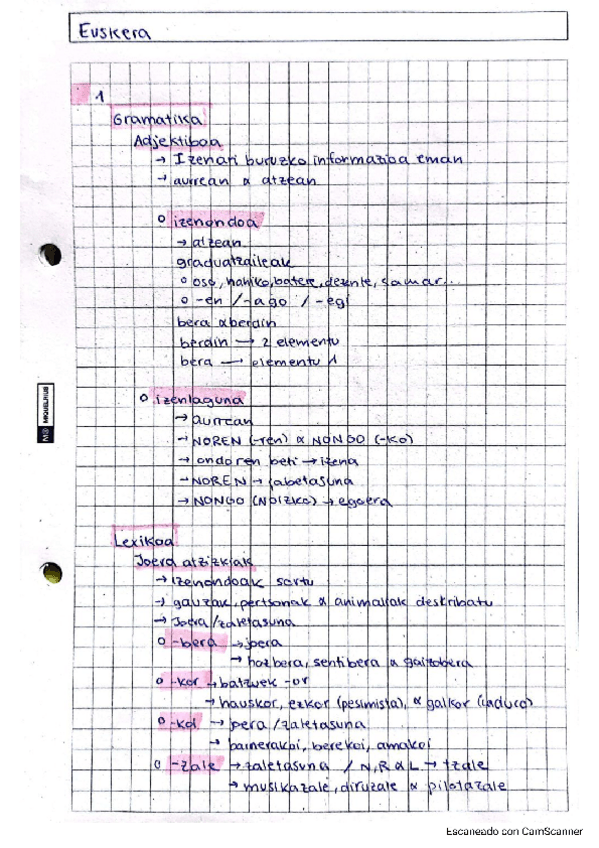 Euskera
1
Gramatika
Adjektiboa
→ Izenari buruzko informazioa eman
→ aurrean & atzean
o izenondoa
→ atzean
graduatzaileak
o oso, nahiko, batere, dezente, samar...
o -en / -ago / -egi
bera & berdin
berdin → 2 elementu
bera → elementu 1
o izenlaguna
→ aurrean
→ NOREN (-ren) & NONGO (-ko)
→ ondoren beti → izena
→ NOREN → jabetasuna
→ NONGO (NOIZKO) → egoera
Lexikoa
Joera atzizkiak
→ Izenondoak sortu
→ gauzak, pertsonak & animaliak deskribatu
→ Joera/zaletasuna
o -bera → joera
→ hozbera, sentibera & gaizobera
o -kor → batzuek -or
→ hauskor, ezkor (pesimista), & galkor (caduco)
o -koi → joera/zaletasuna
→ barnerakoi, berekoi, amakoi
o -zale → zaletasuna / N, R & L → tzale
→ musikazale, diruzale & pilotazale
MIQUELRIUS
Escaneado con CamScanner